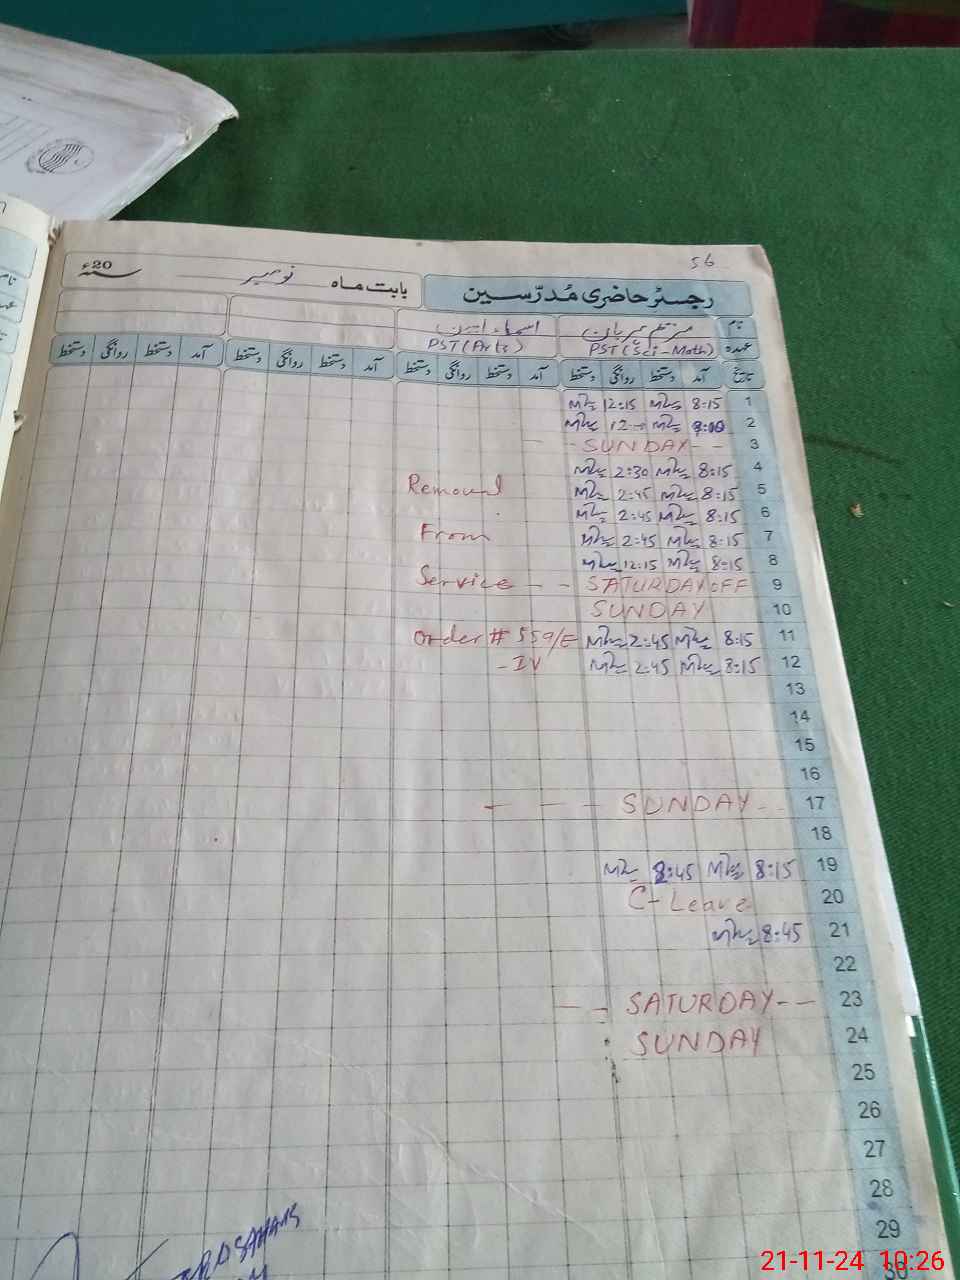 56
رجسٹر حاضری مُدرّسین بابت ماہ نومبر 20ء
نام
عہدہ PST (Sci-Math) PST (Arts)
تاریخ آمد دستخط روانگی دستخط آمد دستخط روانگی دستخط آمد دستخط روانگی دستخط آمد دستخط روانگی دستخط
1 8:15 12:15
2 12
3 SUNDAY
4 8:15 2:30
5 8:15 2:45 Removal
6 8:15 2:45
7 8:15 2:45 From
8 8:15 12:15
9 SATURDAY OFF Service
10 SUNDAY
11 8:15 2:45 Order # 559/E
12 8:15 2:45 - IV
13
14
15
16
17 SUNDAY
18
19 8:15 2:45
20 C-Leave
21 8:45
22
23 SATURDAY
24 SUNDAY
25
26
27
28
29
30
21-11-24 10:26